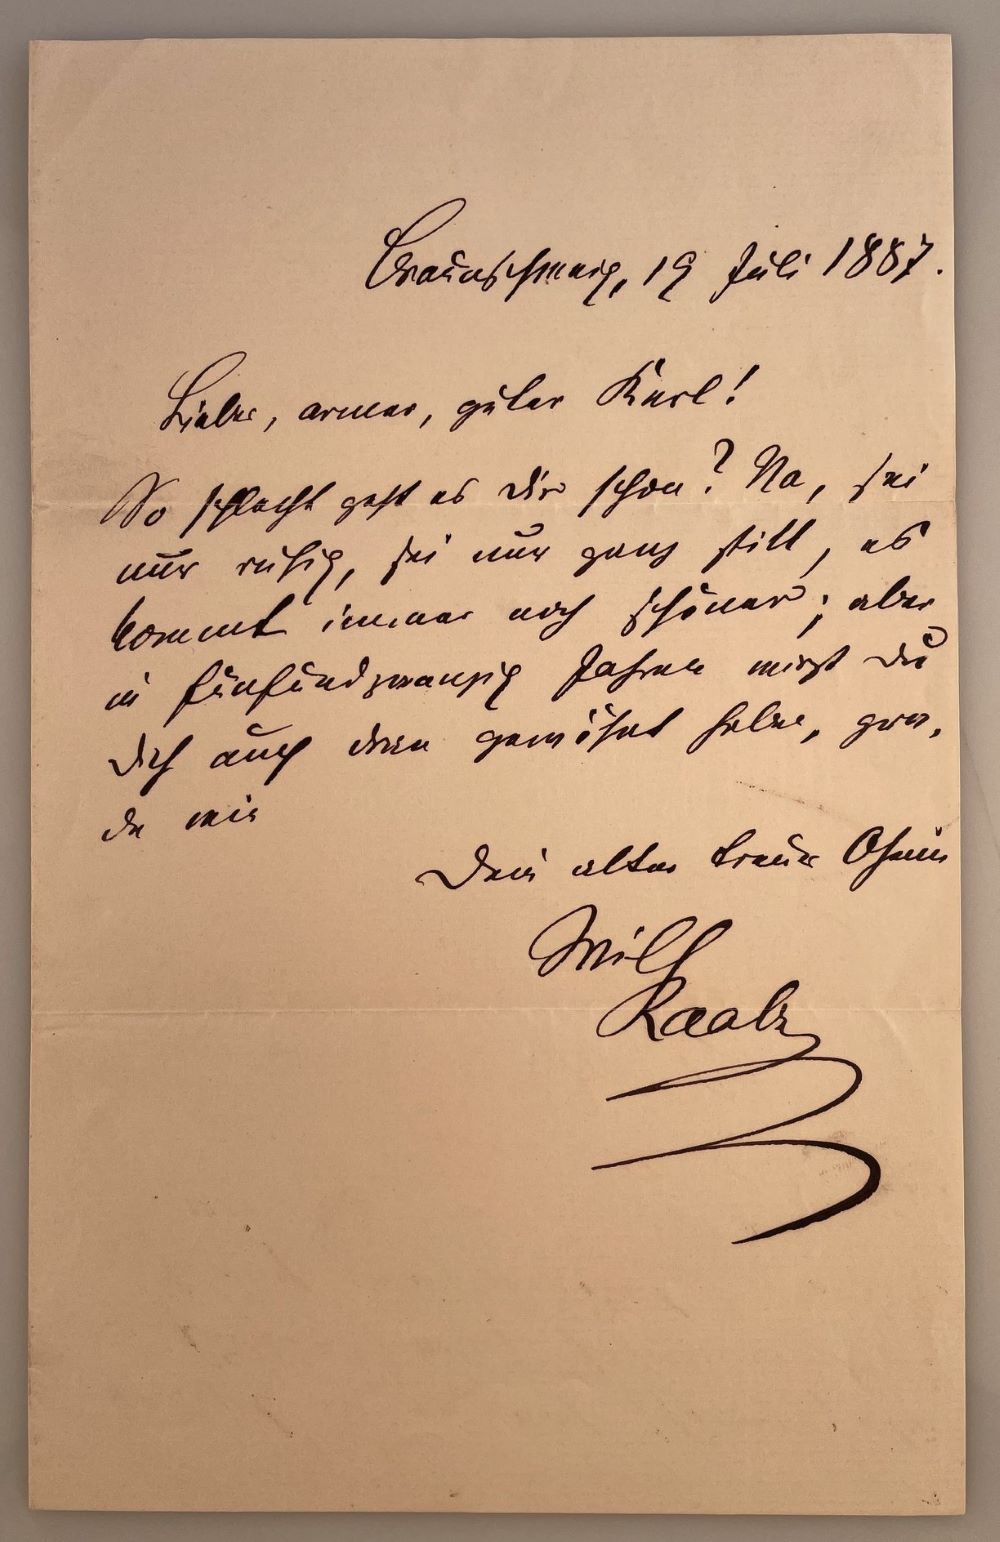 Braunschweig, 19 Juli 1887.
Lieber, armer, guter Kerl!
So schlecht geht es Dir schon? Na, sei
nur ruhig, sei nur ganz still, es
kommt immer noch schöner; aber
in fünfundzwanzig Jahren wirst Du
Dich auch dran gewöhnt haben, gra,
de wie
Dein alter treuer Oheim
Wilh
Raabe